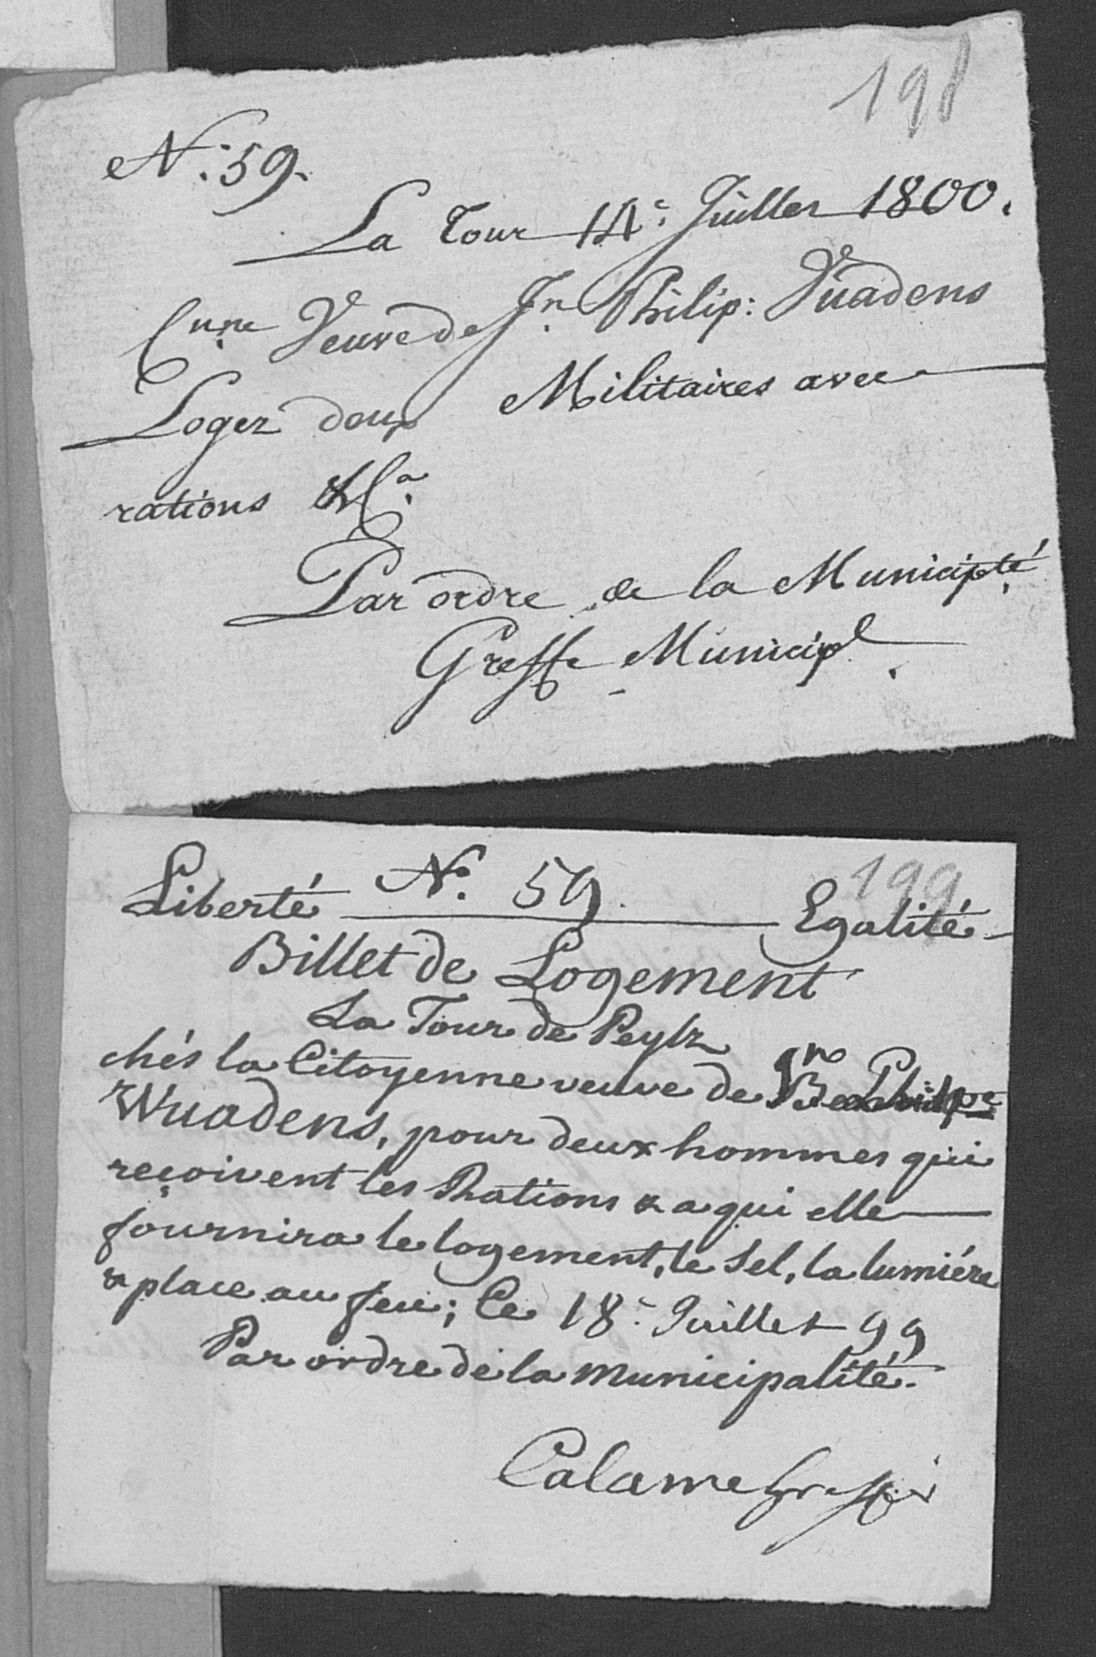 198
N.° 59.
La Tour 14e. Juillet 1800.
Cnne Veuve de Jn Philip: Vuadens
Logez deux Militaires avec
rations &Ca.
Par ordre de la Municipté.
Greffe Municipl.
199
Liberté N.° 59. Egalité
Billet de Logement
La Tour de Peylz
chés la Citoyenne veuve de Jn Philipe
Wuadens, pour deux hommes qui
reçoivent les Rations & a qui elle
fournira le logement, le Sel, la lumiére
& place au feu; Ce 18e. Juillet 99
Par ordre de la municipalité.
Calame